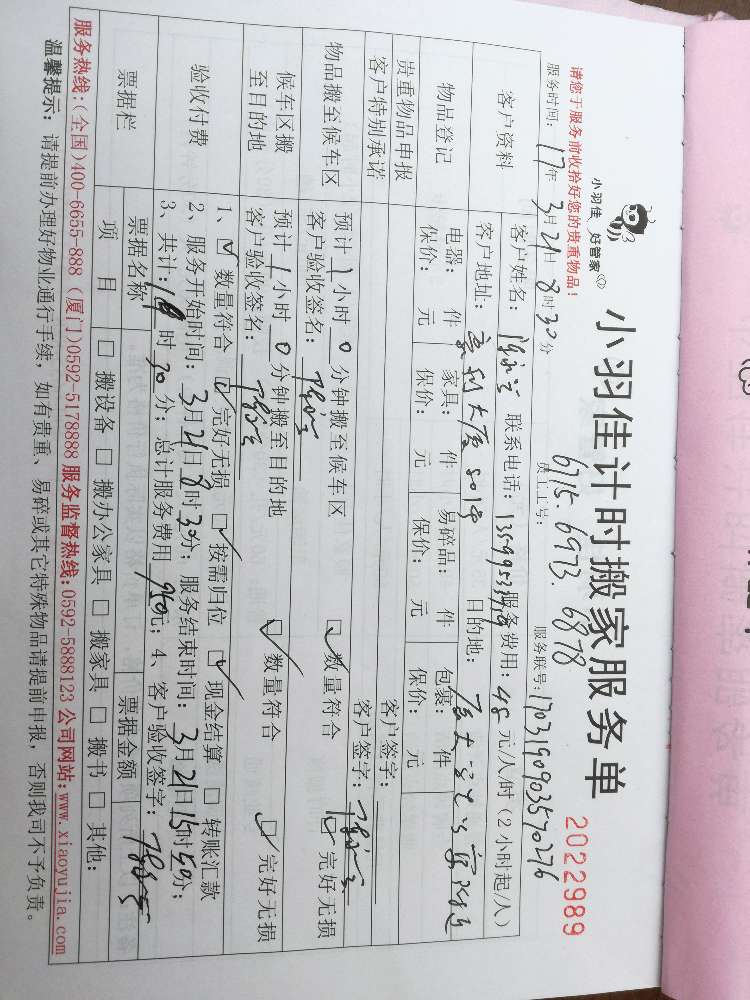 小羽佳 好管家
小羽佳计时搬家服务单
2022989
请您于服务前收拾好您的贵重物品!
员工工号: 6715. 6973. 6878
服务时间: 17年 3月21日 8时30分
服务联号: 17031909035 70276
客户资料
客户姓名: 联系电话: 服务费用: 48 元/人/时(2小时起/人)
客户地址: 大厦 801# 目的地:
物品登记
电器: 件 家具: 件 易碎品: 件 包裹: 件
保价: 元 保价: 元 保价: 元 保价: 元
贵重物品申报
客户特别承诺
客户签字:
客户签字:
物品搬至候车区
预计 1 小时 0 分钟搬至候车区
客户验收签名:
☑ 数量符合 ☑ 完好无损
候车区搬
至目的地
预计 1 小时 0 分钟搬至目的地
客户验收签名:
☑ 数量符合 ☑ 完好无损
验收付费
1、☑ 数量符合 ☑ 完好无损 ☑ 按需归位 ☑ 现金结算 □ 转账汇款
2、服务开始时间: 3月21日8时30分; 服务结束时间: 3月21日15时50分;
3、共计: 时 30 分; 总计服务费用 950元; 4、客户验收签字:
票据栏
票据名称 票据金额
项 目 □ 搬设备 □ 搬办公家具 □ 搬家具 □ 搬书 □ 其他:
服务热线:(全国)400-6655-888 (厦门)0592-5178888 服务监督热线:0592-5888123 公司网站:www.xiaoyujia.com
温馨提示: 请提前办理好物业通行手续, 如有贵重、易碎或其它特殊物品请提前申报, 否则我司不予负责。